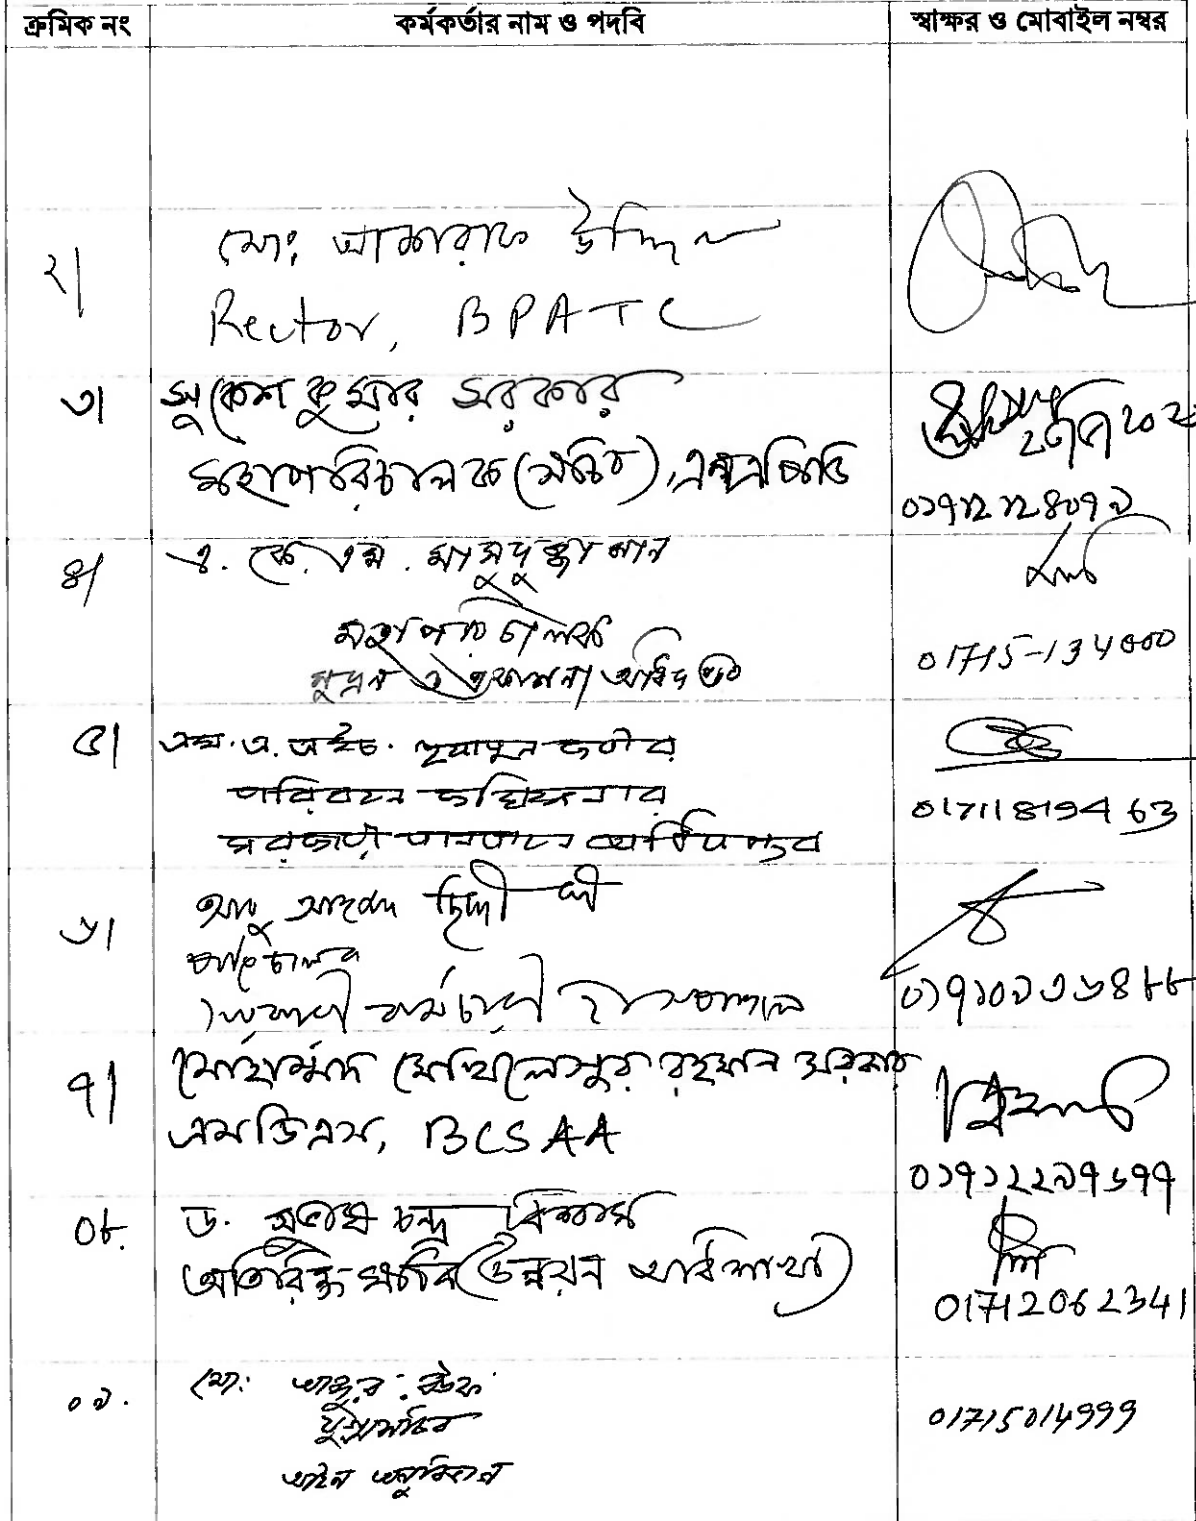 ক্রমিক নং কর্মকর্তার নাম ও পদবি স্বাক্ষর ও মোবাইল নম্বর
২। মো: আশরাফ উদ্দিন
Rector, BPATC
৩। সুকেশ কুমার সরকার
মহাপরিচালক (সচিব), এনএপিডি
০১৭১২১২৪০৭৯
৪। এ. কে. এম. মাসুদুজ্জামান
মহাপরিচালক
মুদ্রণ ও প্রকাশনা অধিদপ্তর
01715-134000
৫। এম. এ. এইচ. হুমায়ুন কবীর
পরিবহন কমিশনার
সরকারী যানবাহন অধিদপ্তর
01711819463
৬। আবু আহমদ ছিদ্দীকী
পরিচালক
সরকারী কর্মচারী হাসপাতাল
০১৭১০৯৩৬৪৮৮
৭। মোহাম্মদ মোখলেসুর রহমান সরকার
এমডিএস, BCSAA
০১৭১২২৯৭৬৭৭
০৮. ড. সুভাষ চন্দ্র বিশ্বাস
অতিরিক্ত সচিব (উন্নয়ন অধিশাখা)
01712062341
০৯. মো: আব্দুর রউফ
যুগ্মসচিব
আইন অনুবিভাগ
01715014999